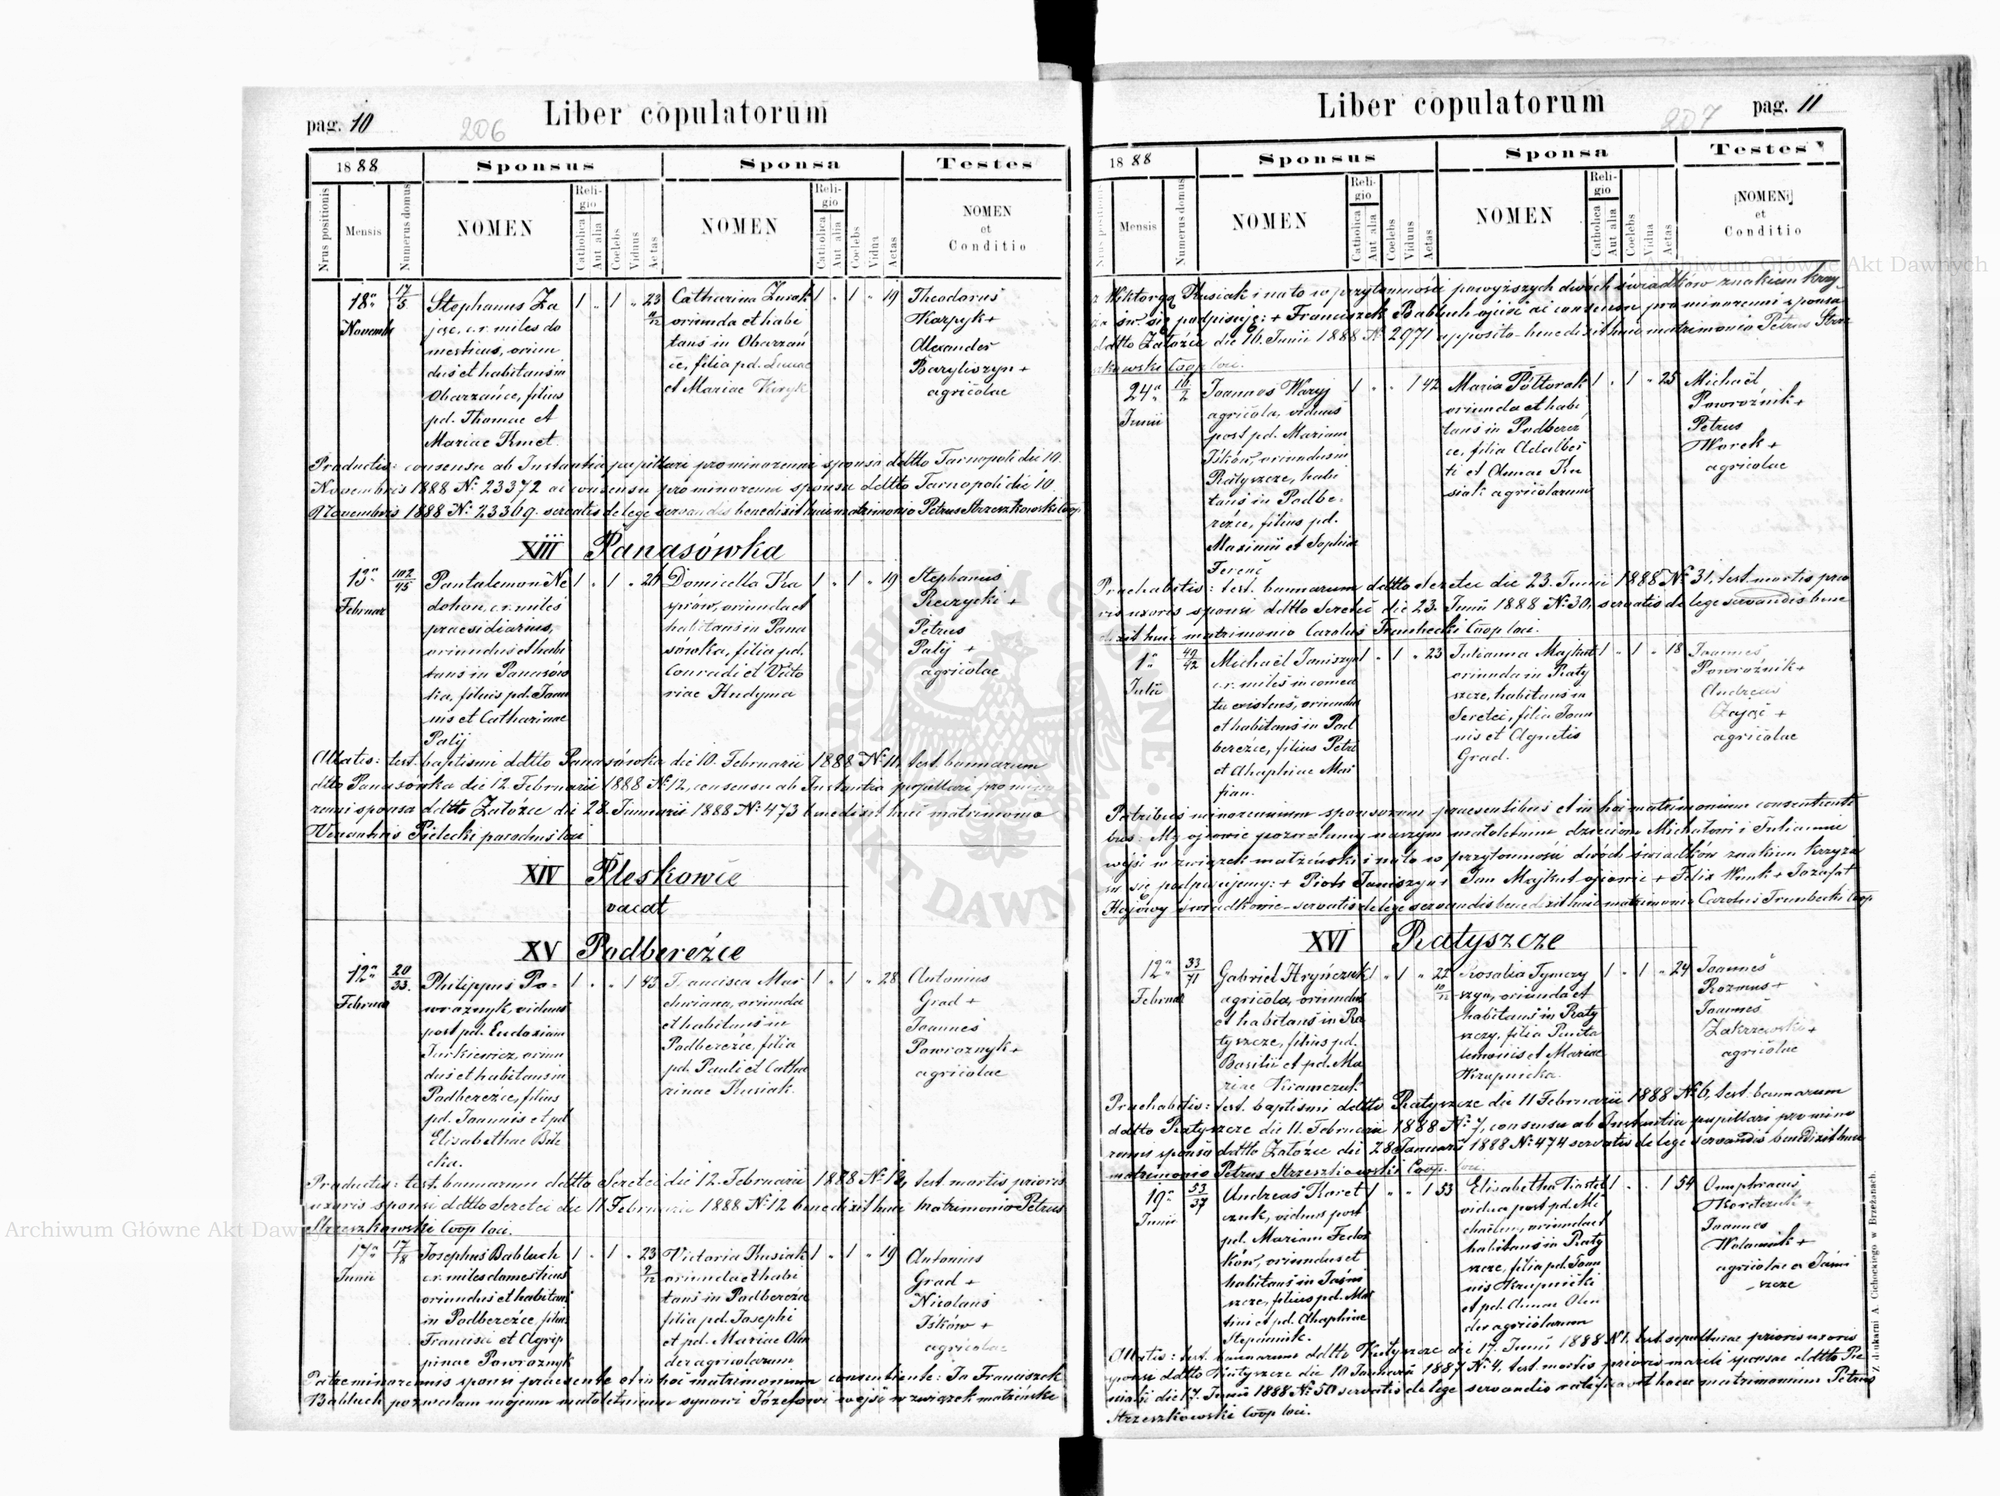 pag. 10
206
Liber copulatorum
1888
Sponsus
Sponsa
Testes
Nrus positionis
Mensis
Numerus domus
NOMEN
Religio
Catholica
Aut alia
Coelebs
Viduus
Aetas
NOMEN
Religio
Catholica
Aut alia
Coelebs
Vidua
Aetas
NOMEN
et
Conditio
18ª
Novembr
17/5
Stephanus Za
jąc, c.r. miles do
mesticus, oriun
dus et habitans in
Obarzańce, filius
pd. Thomae et
Mariae Kmet.
1 " 1 " 23
Catharina Zusak
oriunda et habi
tans in Obarzan
ce, filia pd. Lucae
et Mariae
1 " 1 " 19
Theodorus
Karpyk +
Alexander
Baryliszyn +
agricolae
Productis: consensu ab Instantia pupillari pro minorenni sponsa ddtto Tarnopoli die 10.
Novembris 1888 Nº 23372 ac consensu pro minorenni sponso ddtto Tarnopoli die 10.
Novembris 1888 Nº 23369. servatis de lege servandis benedixit huic matrimonio Petrus Strzeszkowski Coop
XIII Panasówka
13ª
Februar
102/45
Pantalemon Ne
dohon, c.r. miles
praesidiarius,
oriundus et habi
tans in Panasów
ka, filius pd. Joan
nis et Catharinae
Palij
1 " 1 " 26
Domicella Ka
sprów, oriunda et
habitans in Pana
sówka, filia pd.
Conradi et Victo
riae Hudyma
1 " 1 " 19
Stephanus
Raczycki +
Petrus
Palij +
agricolae
Allatis: test. baptismi ddtto Panasówka die 10. Februarii 1888 Nº 11, test. bannorum
dtto Panasówka die 12. Februarii 1888 Nº 12, consensu ab Instantia pupillari pro mino
renni sponsa ddtto Załoźce die 28. Januarii 1888 Nº 473 benedixit huic matrimonio
Venantius Pielecki parochus loci
XIV Pleskowce
vacat
XV Podbereźce
12ª
Februar
20/33
Philippus Po-
wroznyk, viduus
post pd. Eudoxiam
Jurkiewicz, oriun
dus et habitans in
Podbereźce, filius
pd. Joannis et pd
Elisabethae Bile
cka.
1 " " 1 43
Francisca Mar
chwiana, oriunda
et habitans in
Podbereźce, filia
pd. Pauli et Catha
rinae Kusiak.
1 " 1 " 28
Antonius
Grad +
Joannes
Powroznyk +
agricolae
Productis: test. bannorum ddtto Seretci die 12. Februarii 1888 Nº 13, test mortis prioris
uxoris sponsi ddtto Seretci die 11 Februarii 1888 Nº 12 benedixit huic matrimonio Petrus
Strzeszkowski Coop loci.
17ª
Junii
17/18
Josephus Babluch
c.r. miles domesticus
oriundus et habitans
in Podbereźce, filius
Francisci et Agrip
pinae Powroznyk
1 " 1 " 23 9/12
Victoria Kusiak
oriunda et habi
tans in Podbereźce
filia pd. Josephi
et pd. Mariae Olen
der agricolarum
1 " 1 " 19
Antonius
Grad +
Nicolaus
Iśków +
agricolae
Patre minorennis sponsi praesente et in hoc matrimonium consentiente: Ja Franciszek
Babluch pozwalam mojemu małoletniemu synowi Józefowi wejść w związek małżeński
Liber copulatorum
207
pag. 11
1888
Sponsus
Sponsa
Testes
Nrus positionis
Mensis
Numerus domus
NOMEN
Religio
Catholica
Aut alia
Coelebs
Viduus
Aetas
NOMEN
Religio
Catholica
Aut alia
Coelebs
Vidua
Aetas
NOMEN
et
Conditio
z Wiktoryą Kusiak i na to w przytomności powyższych dwóch świadków znakiem krzy-
ża św. się podpisuję: + Franciszek Babluch ojciec ac consensu pro minorenni sponsa
ddtto Załoźce die 16. Junii 1888 Nº 2971 apposito - benedixit huic matrimonio Petrus Strze
szkowski Coop loci.
24ª
Junii
16/2
Joannes Waryj
agricola, viduus
post pd. Mariam
Iśków, oriundus in
Ratyszcze, habi
tans in Podbe-
reźce, filius pd.
Maximi et Sophiae
Ferenc
1 " " 1 42
Maria Półtorak
oriunda et habi
tans in Podberez
ce, filia Adalber
ti et Annae Ku
siak agricolarum
1 " 1 " 25
Michaël
Powroźnik +
Petrus
Worek +
agricolae
Praehabitis: test. bannorum ddtto Seretci die 23. Junii 1888 Nº 31, test. mortis prio
ris uxoris sponsi ddtto Seretci die 23. Junii 1888 Nº 30, servatis de lege servandis bene
dixit huic matrimonio Carolus Trembecki Coop loci.
1ª
Julii
49/42
Michaël Joniszyn
c.r. miles in comea
tu existens, oriundus
et habitans in Pod
bereźce, filius Petri
et Ahaphiae Mar
fian.
1 " 1 " 23
Julianna Majkut
oriunda in Raty
szcze, habitans in
Seretci, filia Joan
nis et Agnetis
Grad.
1 " 1 " 18
Joannes
Powroźnik +
Andreas
Zając +
agricolae
Patribus minorennium sponsorum praesentibus et in hoc matrimonium consentienti
bus: My ojcowie pozwalamy naszym małoletnim dzieciom Michałowi i Juliannie
wejść w związek małżeński i na to w przytomności dwóch świadków znakiem krzyża
św. się podpisujemy: + Piotr Janiszyn + Jan Majkut ojcowie + Felix Wenk + Jozafat
Hajowy świadkowie - servatis de lege servandis benedixit huic matrimonio Carolus Trembecki Coop
XVI Ratyszcze
12ª
Februar
33/71
Gabriel Hryńczuk
agricola, oriundus
et habitans in Ra
tyszcze, filius pd.
Basilii et pd. Ma
riae Kramczuk
1 " 1 " 22 10/12
Rosalia Tymczy
szyn, oriunda et
habitans in Raty
szczy, filia Panta
lemonis et Mariae
Krupnicka.
1 " 1 " 24
Joannes
Rozmus +
Joannes
Zakrzewski +
agricolae
Praehabitis: test. baptismi ddtto Ratyszcze die 11 Februarii 1888 Nº 6, test. bannorum
ddtto Ratyszcze die 11. Februarii 1888 Nº 7, consensu ab Instantia pupillari pro mino
renni sponso ddtto Załoźce die 28 Januarii 1888 Nº 474 servatis de lege servandis benedixit huic
matrimonio Petrus Strzeszkowski Coop. loci.
19ª
Junii
53/37
Andreas Karet
czuk, viduus post
pd. Mariam Fedor
ków, oriundus et
habitans in Jaśni
szcze, filius pd. Mar
tini et pd. Ahaphiae
Stepannik.
1 " " 1 53
Elisabetha Kiortel
vidua post pd. Mi
chaëlem, oriunda et
habitans in Raty
szcze, filia pd. Joan
nis Krupnicki
et pd. Annae Olen
der agricolarum
1 " " 1 54
Onuphraeus
Koretczuk +
Joannes
Wolannik +
agricolae a Jaśni
szcze
Allatis: test. bannorum ddtto Ratyszcze die 17. Junii 1888 Nº 1, test. sepulturae prioris uxoris
sponsi ddtto Ratyszcze die 10 Januarii 1887 Nº 4, test. mortis prioris mariti sponsae ddtto Pie
niaki die 17. Junii 1888 Nº 50 servatis de lege servandis ratificavit hocce matrimonium Petrus
Strzeszkowski Coop loci.
Z drukarni A. Cichockiego w Brzeżanach.
Archiwum Główne Akt Dawnych
Archiwum Główne Akt Dawnych
ARCHIWUM GŁÓWNE AKT DAWNYCH